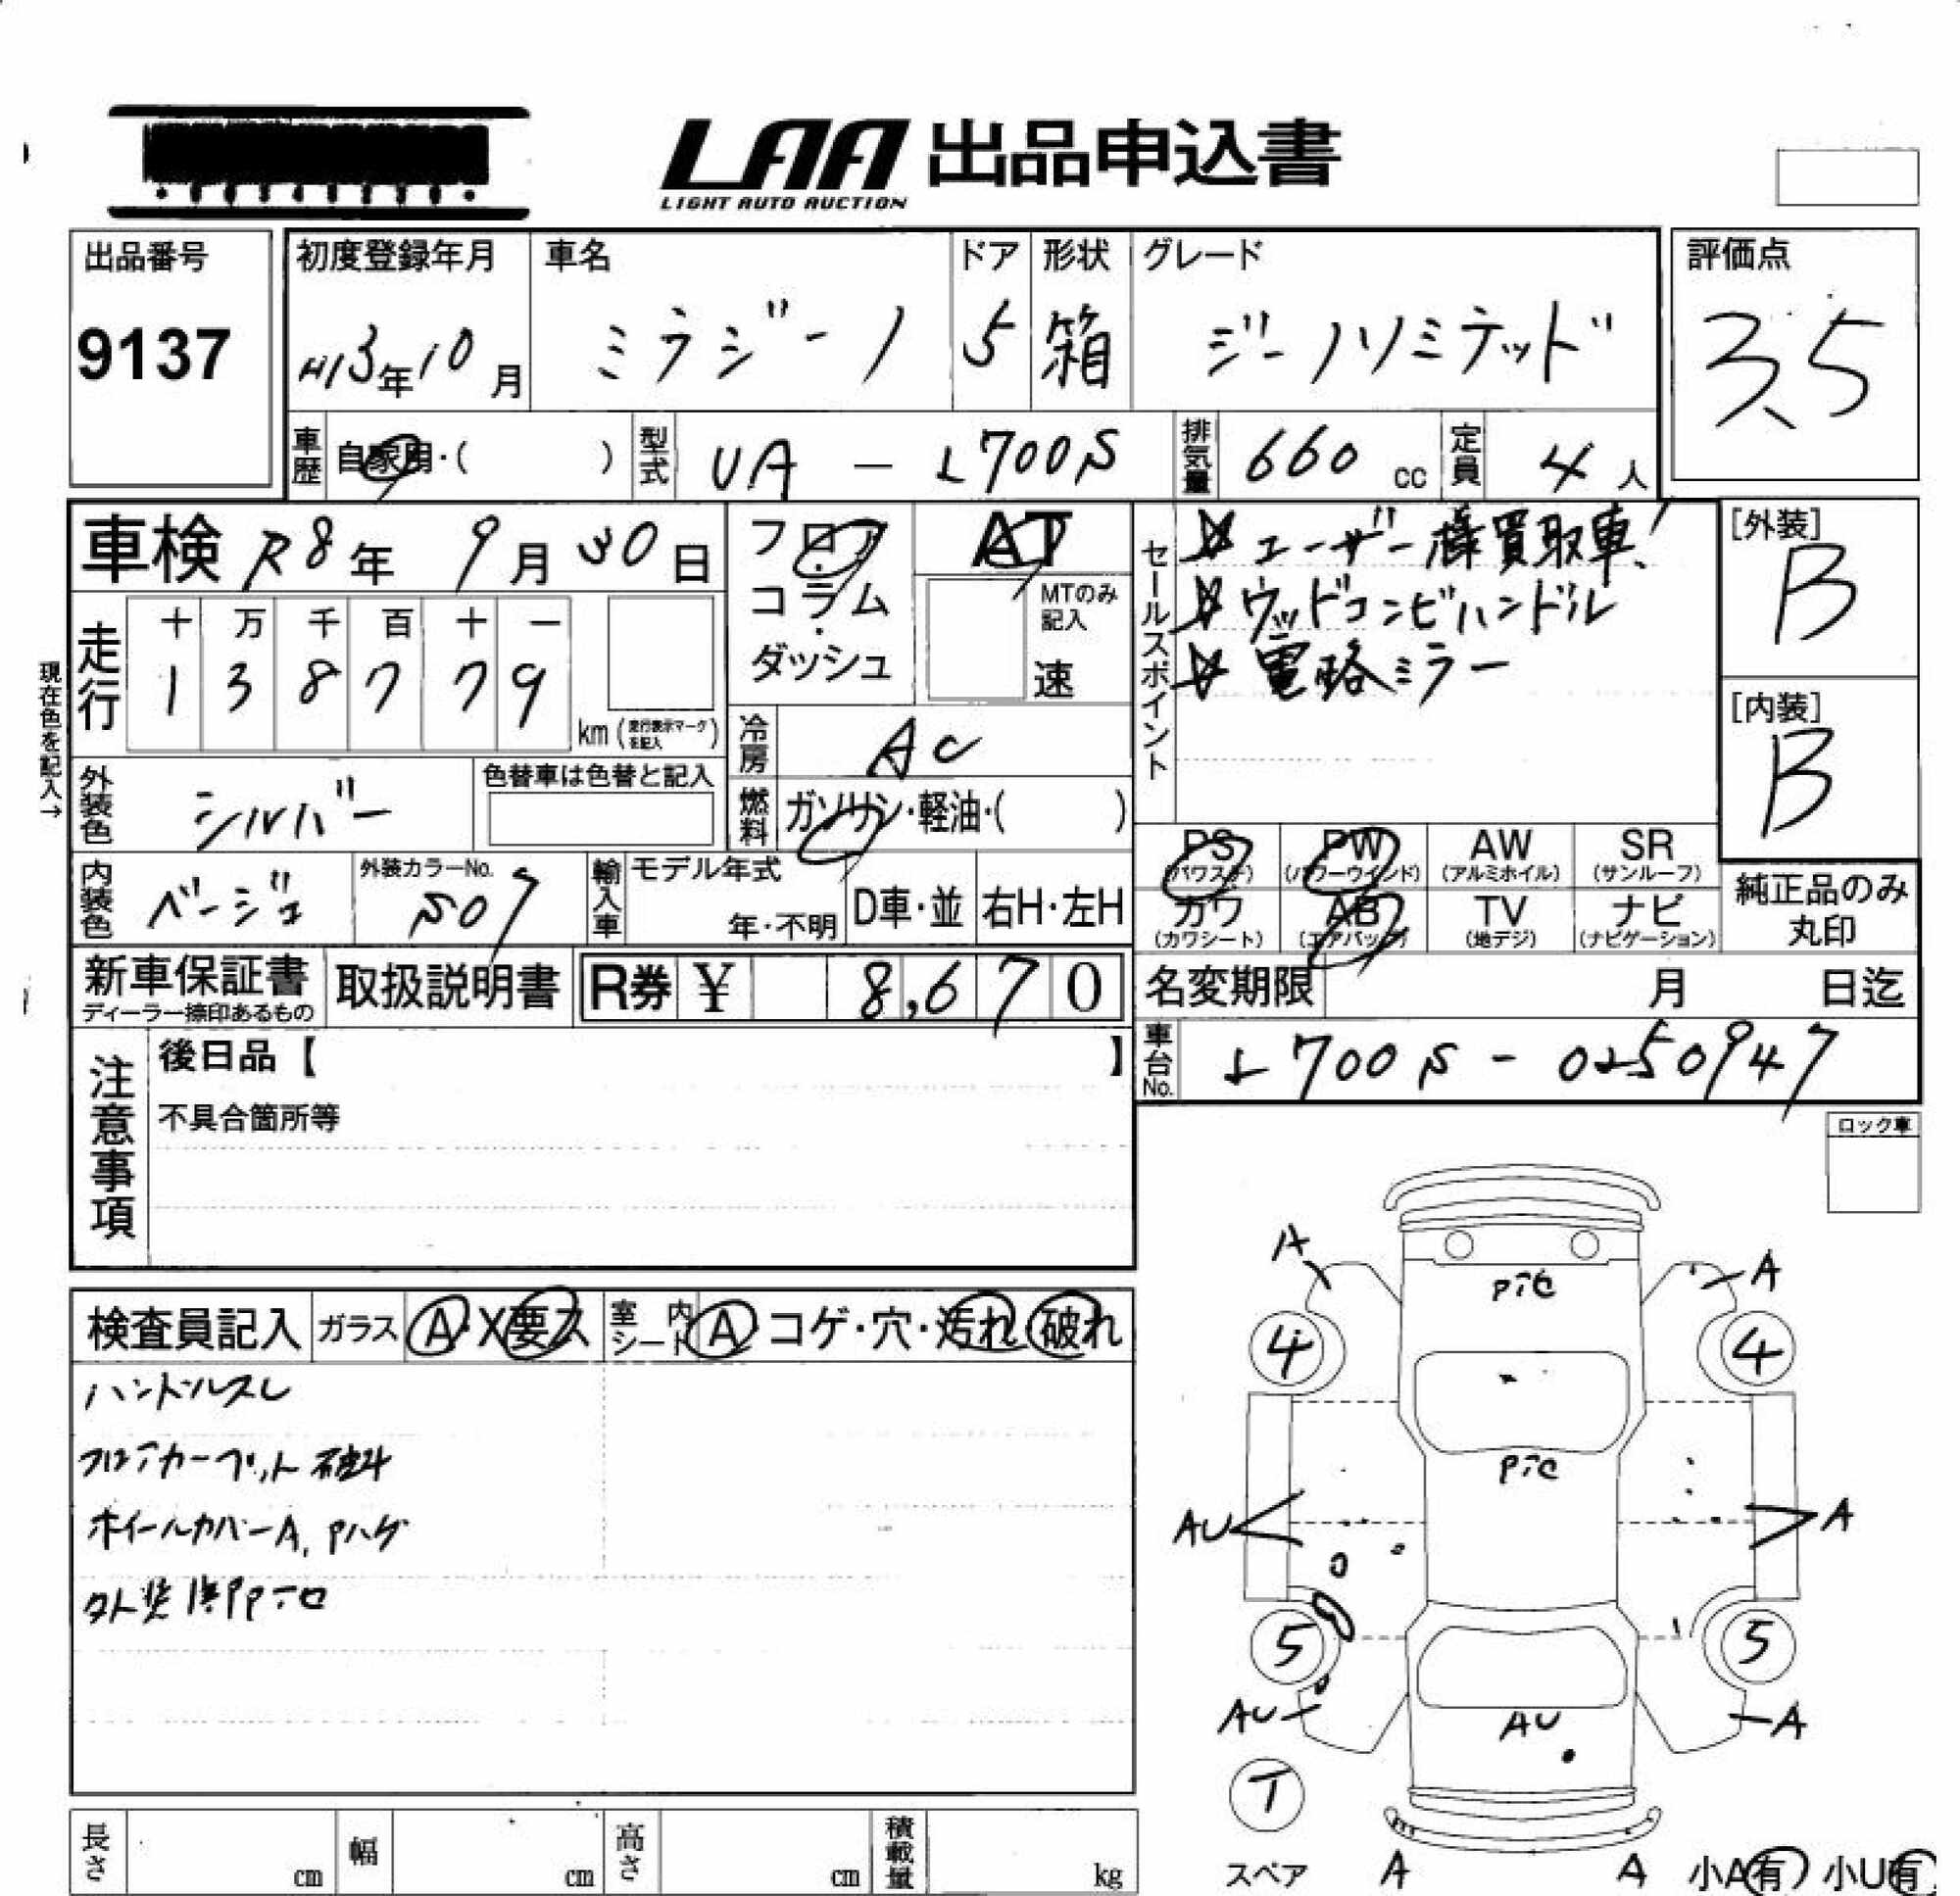 LAA 出品申込書
LIGHT AUTO AUCTION
出品番号
9137
初度登録年月
H13年10月
車名
ミラジーノ
ドア
5
形状
箱
グレード
ジーノリミテッド
評価点
3.5
車歴
自家用・( )
型式
UA － L700S
排気量
660 cc
定員
4 人
車検 R8年 9月 30日
フロア・コラム・ダッシュ
AT
MTのみ記入
速
セールスポイント
ユーザー様買取車!
ウッドコンビハンドル
電格ミラー
[外装]
B
[内装]
B
現在色を記入→
走行
十 万 千 百 十 一
1 3 8 7 7 9
km (走行表示マークを記入)
冷房
AC
外装色
シルバー
色替車は色替と記入
燃料
ガソリン・軽油・( )
PS (パワステ)
PW (パワーウインド)
AW (アルミホイル)
SR (サンルーフ)
カワ (カワシート)
AB (エアバック)
TV (地デジ)
ナビ (ナビゲーション)
純正品のみ丸印
内装色
ベージュ
外装カラーNo.
S07
輸入車
モデル年式
年・不明
D車・並
右H・左H
新車保証書
ディーラー捺印あるもの
取扱説明書
R券 ¥ 8,670
名変期限 月 日迄
車台No.
L700S - 0250947
注意事項
後日品【 】
不具合箇所等
ロック車
検査員記入
ガラス
A・X要ス
室内シート
A コゲ・穴・汚れ 破れ
ハンドルスレ
フロアカーペット 破れ
ホイールカバーA, Pハゲ
A
A
Pﾃﾛ
4
4
Pﾃﾛ
AU
A
5
5
AU
AU
A
T
スペア
A
A
小A有 小U有
長さ cm
幅 cm
高さ cm
積載量 kg